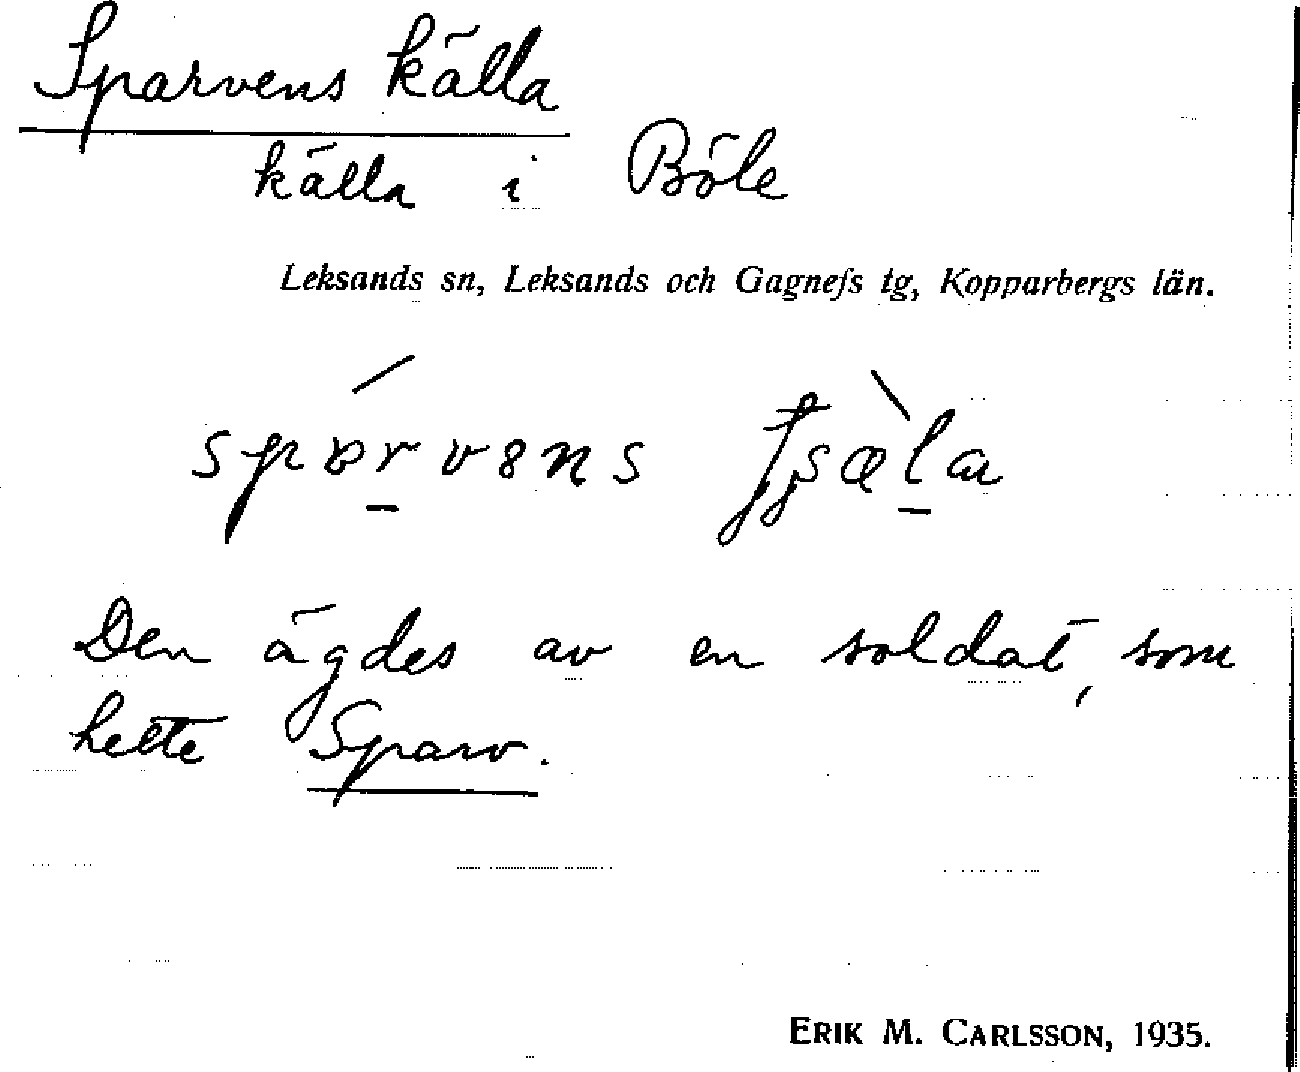 Sparvens källa
källa i Böle
Leksands sn, Leksands och Gagnefs tg, Kopparbergs län.
Den ägdes av en soldat, som
hette Sparv.
ERIK M. CARLSSON, 1935.